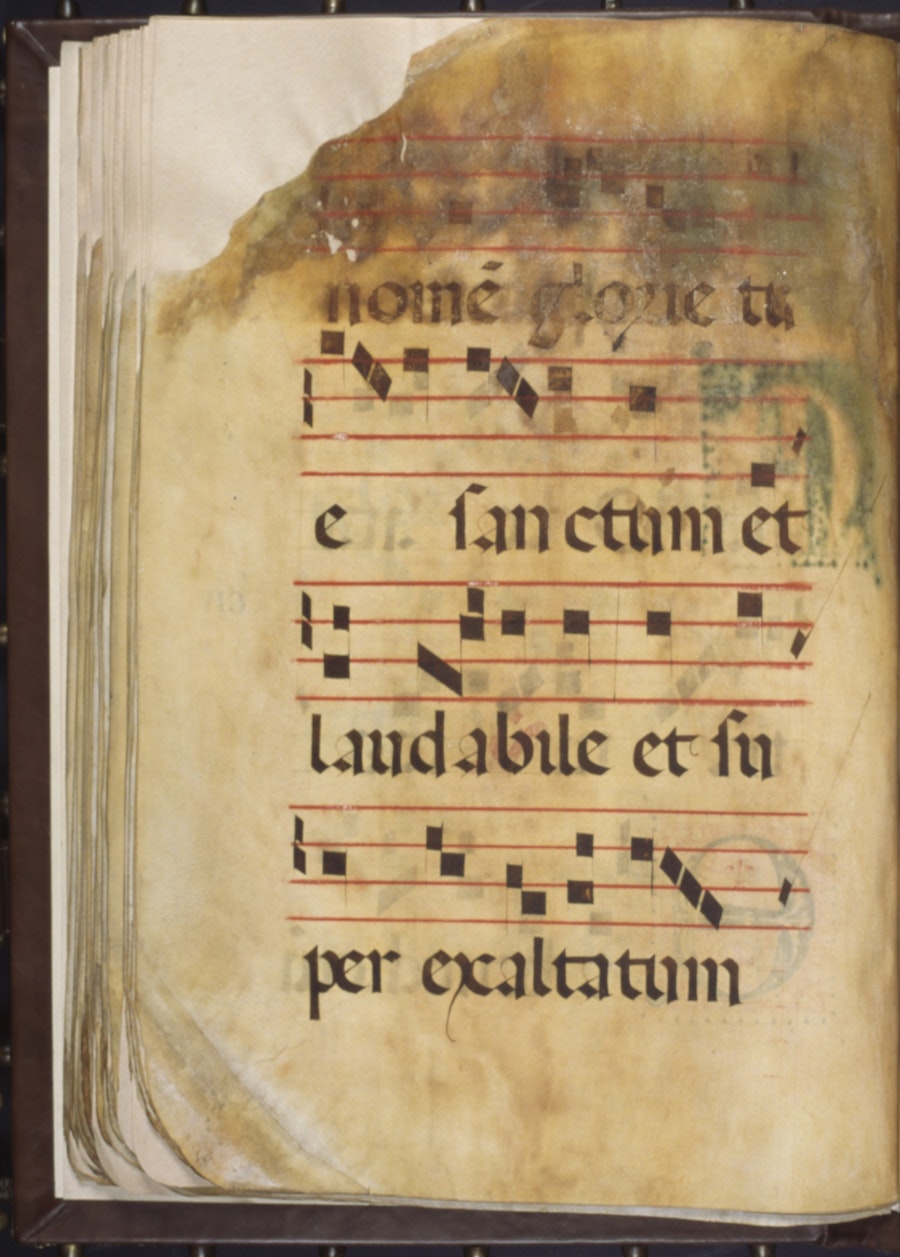 nomē glorie tu
e sanctum et
laudabile et su
per exaltatum